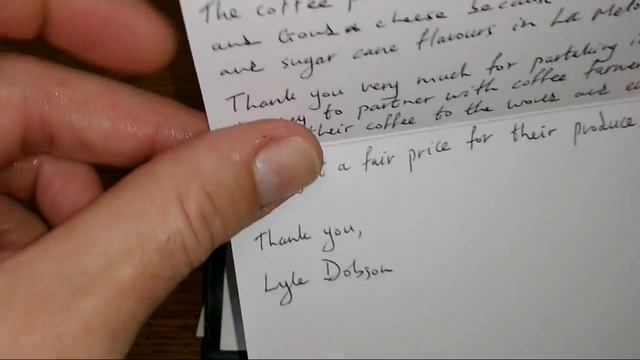 The coffee
and Gouda cheese because
and sugar cane flavours in La
Thank you very much for partaking
to partner with coffee farmers
their coffee to the world and
a fair price for their produce
Thank you,
Lyle Dobson